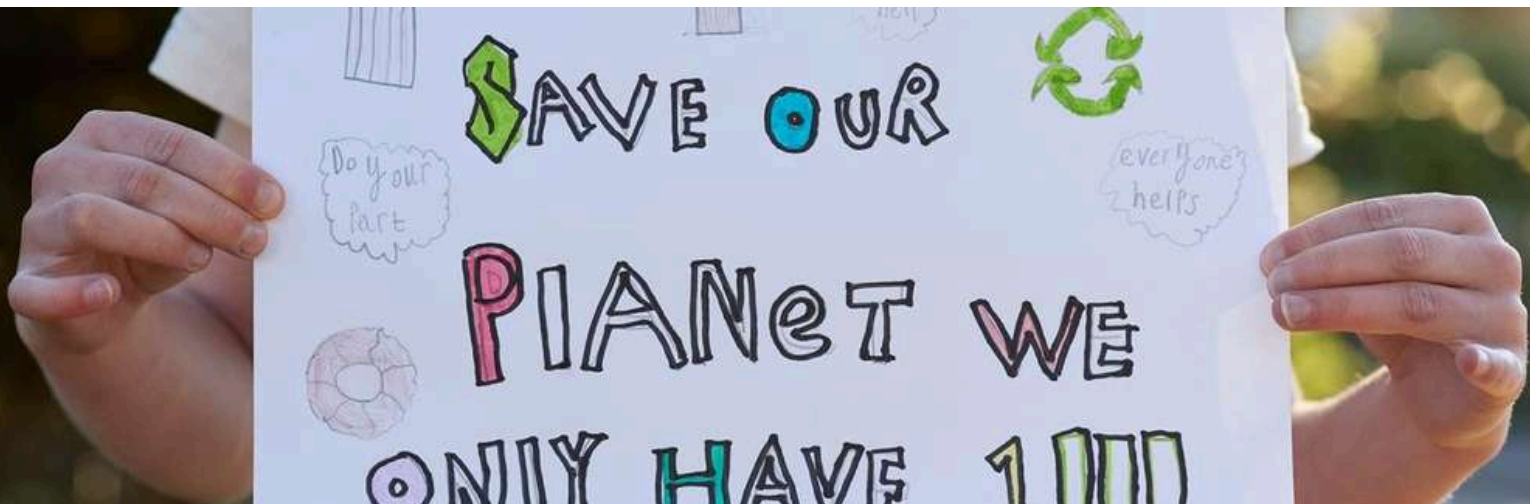 helps
SAVE OUR
Do your
Part
everyone
helps
PlANeT WE
ONlY HAVE 1!!!